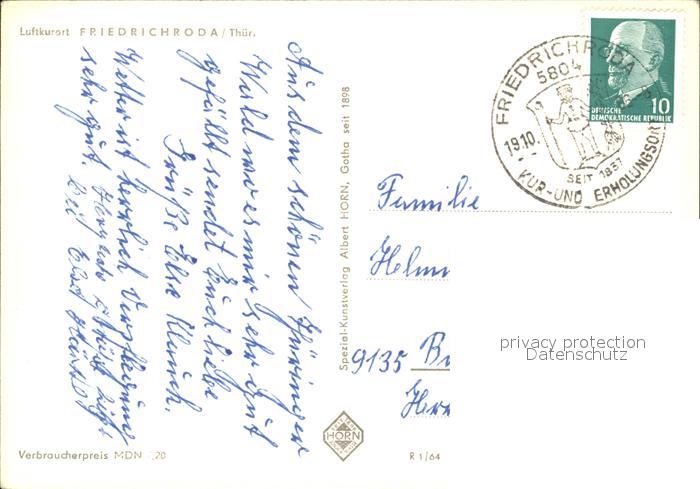 Luftkurort FRIEDRICHRODA / Thür.
Aus dem schönen Thüringer
Wald wo es mir sehr gut
gefällt sendet Euch liebe
Grüße Else
Wetter ist herrlich Verpflegung
sehr gut.
Verbraucherpreis MDN -,20
Spezial-Kunstverlag Albert HORN, Gotha seit 1898
HORN
R 1/64
FRIEDRICHRODA
5804
19.10.
SEIT 1837
KUR- UND ERHOLUNGSORT
10
DEUTSCHE
DEMOKRATISCHE REPUBLIK
Familie
Helm
9135 B
Her
privacy protection
Datenschutz